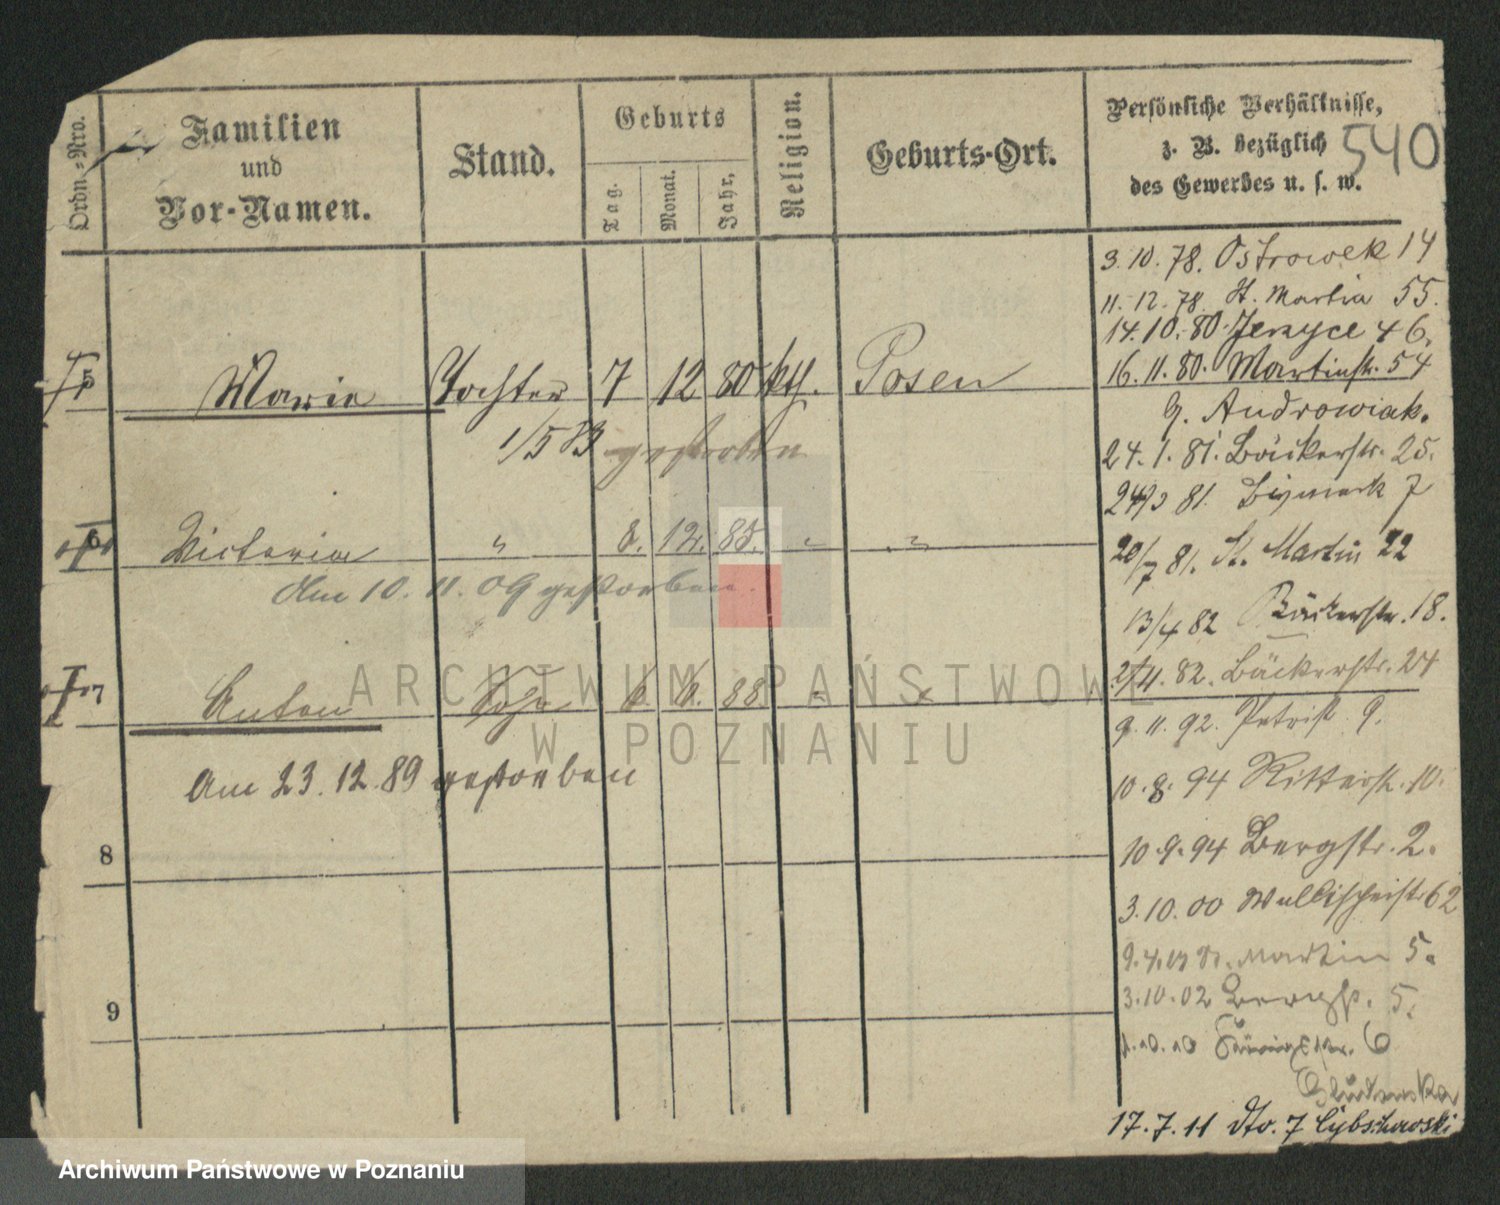 Ordn.-Nro.
Familien
und
Vor-Namen.
Stand.
Geburts
Tag.
Monat.
Jahr.
Religion.
Geburts-Ort.
Persönliche Verhältnisse,
z. B. bezüglich
des Gewerbes u. s. w.
540
3.10.78. Ostrowek 14
11.12.78 St. Martin 55.
14.10.80. Jerzyce 46.
16.11.80. Martinstr. 54
b. Androwiak.
24.1.81. Bäckerstr. 25.
81. Bismark 7
20/7 81. St. Martin 22
13/4 82 Bäckerstr. 18.
82. Bäckerstr. 24
9.11.92. Petrist. 9.
10.8.94 Ritterstr. 10.
10.9.94 Bergstr. 2.
3.10.00 Wallischeistr 62
St. Martin 5.
3.10.02 Bergstr. 5.
6
17.7.11 dto. 7
5 Marie Tochter 7 12 80 kth. Posen
1/5 83 gestorben
6 Victoria " 8. 12. " "
Am 10. 11. 09 gestorben.
7 Anton Sohn 6. 6. 88 " "
Am 23.12.89 gestorben
8
9
ARCHIWUM PAŃSTWOWE
W POZNANIU
Archiwum Państwowe w Poznaniu